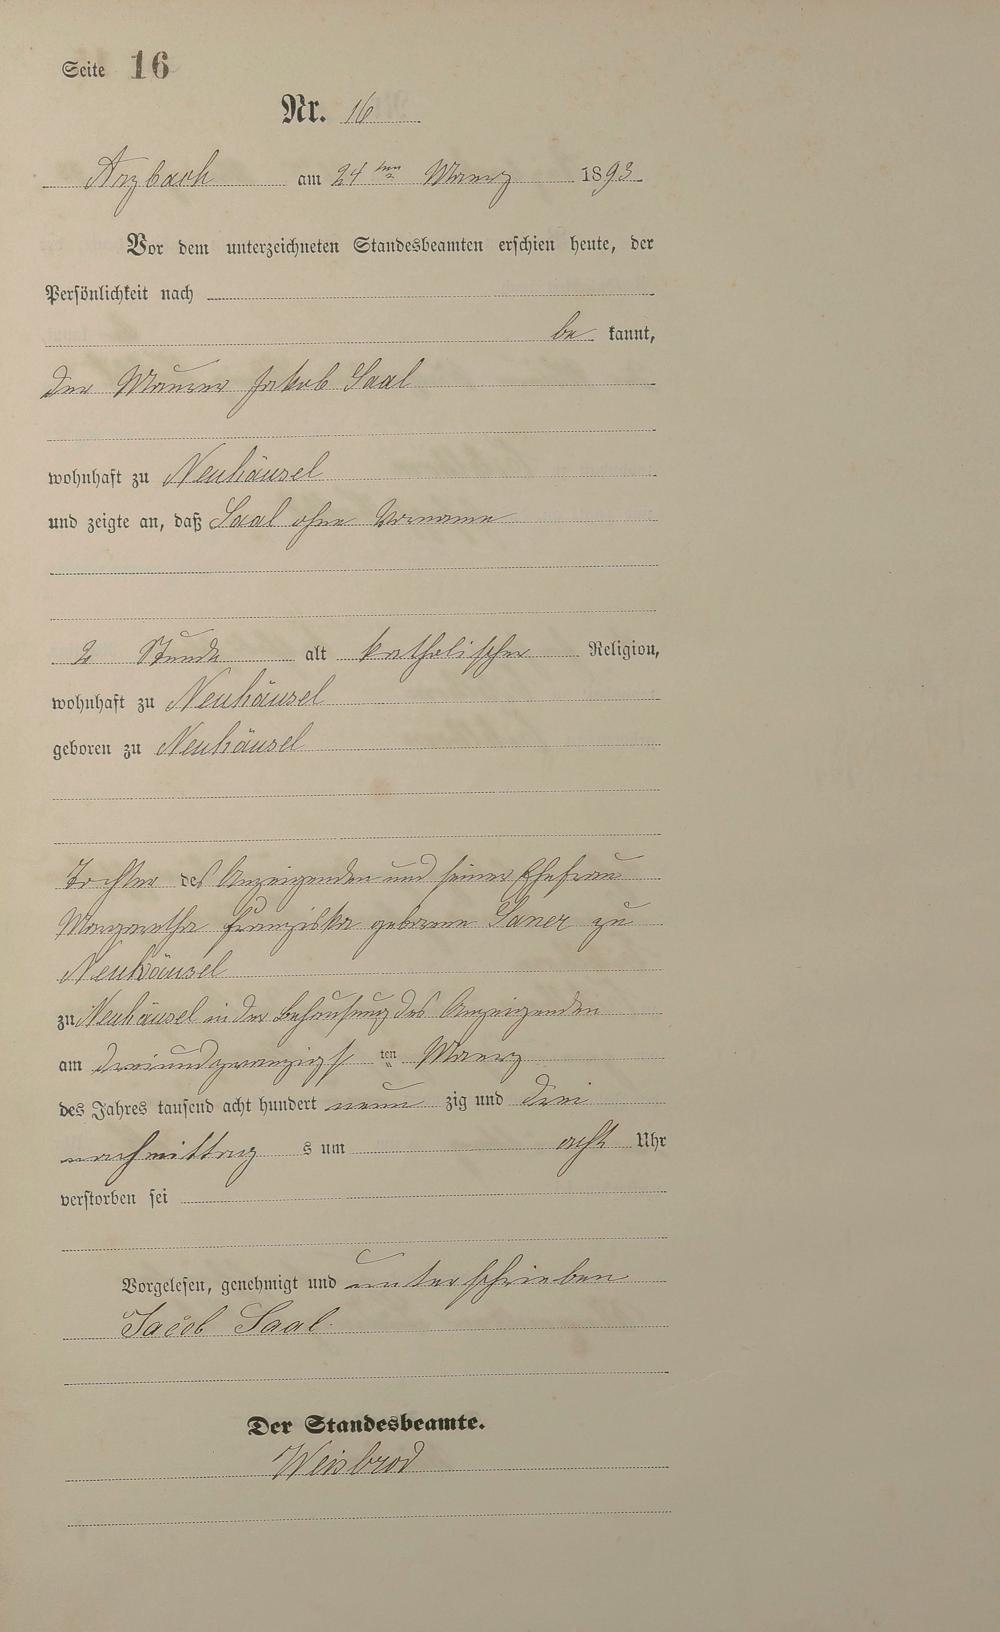 Seite 16
Nr. 16
Arzbach am 24ten Maerz 1893
Vor dem unterzeichneten Standesbeamten erschien heute, der
Persönlichkeit nach
be kannt,
der Maurer Jakob Saal
wohnhaft zu Neuhäusel
und zeigte an, daß Saal ohne Vorname
½ Stunde alt katholischer Religion,
wohnhaft zu Neuhäusel
geboren zu Neuhäusel
Tochter des Anzeigenden und seiner Ehefrau
Margaretha Franziska geborene Saner zu
Neuhäusel
zu Neuhäusel in der Behausung des Anzeigenden
am dreiundzwanzigsten Maerz
des Jahres tausend acht hundert neun zig und drei
nachmittag s um acht Uhr
verstorben sei
Vorgelesen, genehmigt und unterschrieben
Jacob Saal
Der Standesbeamte.
Weisbrod